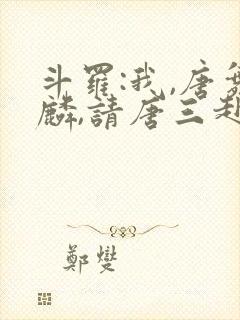 斗羅:我,唐舞
麟,請唐三赴
鄭燮